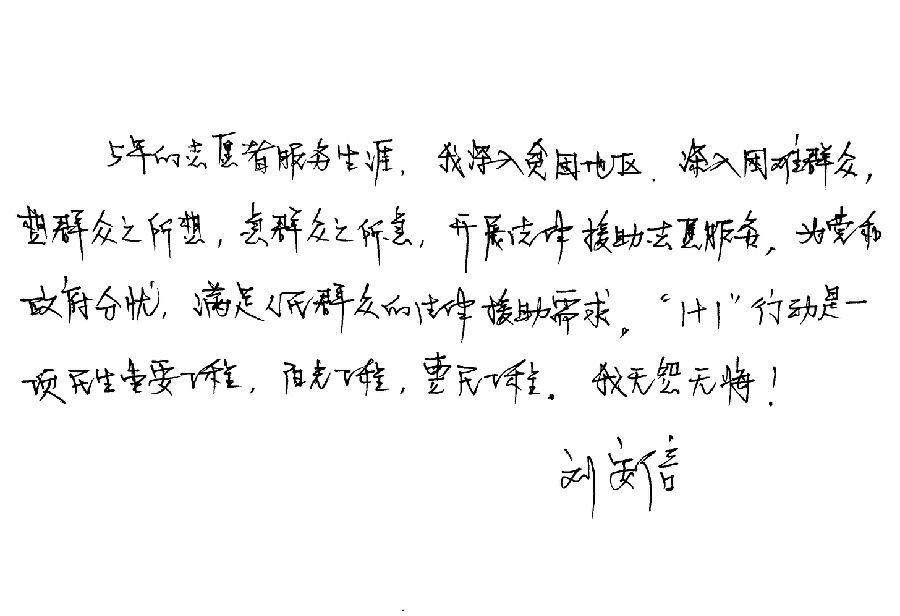 5年的志愿者服务生涯，我深入贫困地区、深入困难群众，
想群众之所想，急群众之所急，开展法律援助志愿服务，为党和
政府分忧，满足人民群众的法律援助需求。“1+1”行动是一
项民生重要工程，阳光工程，惠民工程。我无怨无悔！
刘安信